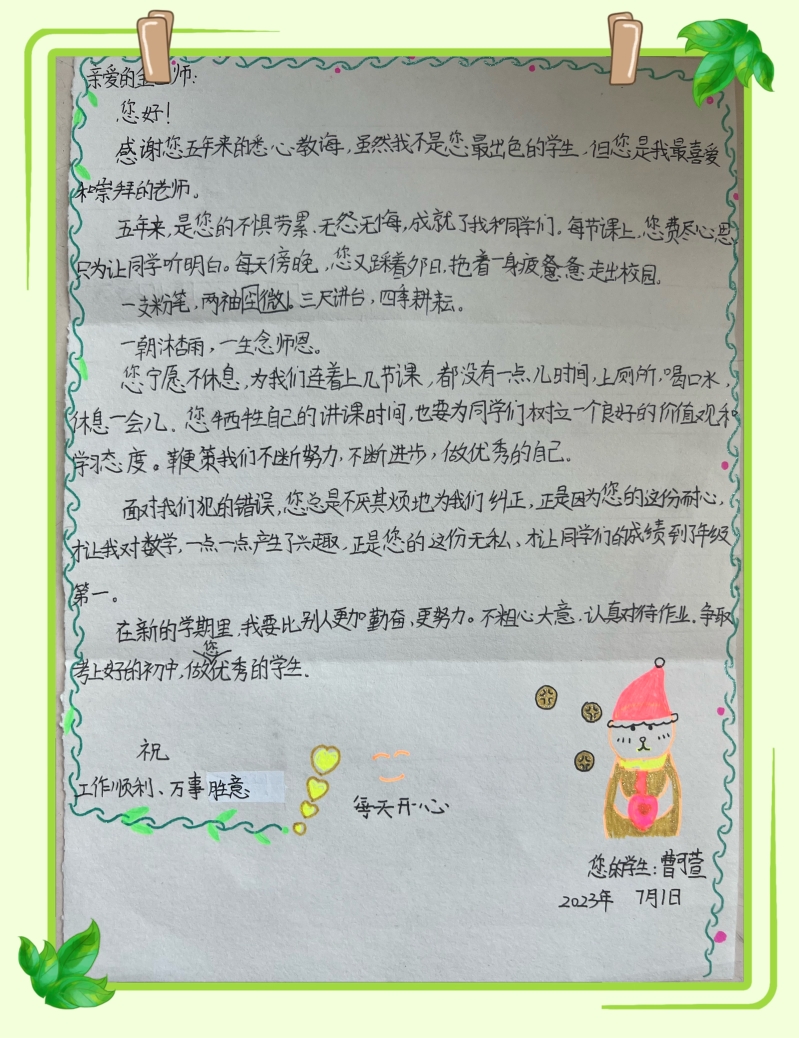 亲爱的 师:
您好!
感谢您五年来的悉心教诲,虽然我不是您最出色的学生,但您是我最喜爱
和崇拜的老师。
五年来,是您的不惧劳累、无怨无悔,成就了我和同学们。每节课上,您费尽心思
只为让同学听明白。每天傍晚,您又踩着夕日,拖着一身疲惫 走出校园。
一支粉笔,两袖 微。三尺讲台,四季耕耘。
一朝沐杏雨,一生念师恩。
您宁愿不休息,为我们连着上几节课,都没有一点儿时间,上厕所,喝口水,
休息一会儿、您牺牲自己的讲课时间,也要为同学们树立一个良好的价值观和
学习态度。鞭策我们不断努力,不断进步,做优秀的自己。
面对我们犯的错误,您总是不厌其烦地为我们纠正,正是因为您的这份耐心,
才让我对数学,一点一点产生了兴趣、正是您的这份无私、才让同学们的成绩到了年级
第一。
在新的学期里,我要比别人更加勤奋、更努力。不粗心大意、认真对待作业。争取
考上好的初中,做您优秀的学生.
祝
工作顺利、万事胜意
每天开心
您的学生:曹可萱
2023年 7月1日